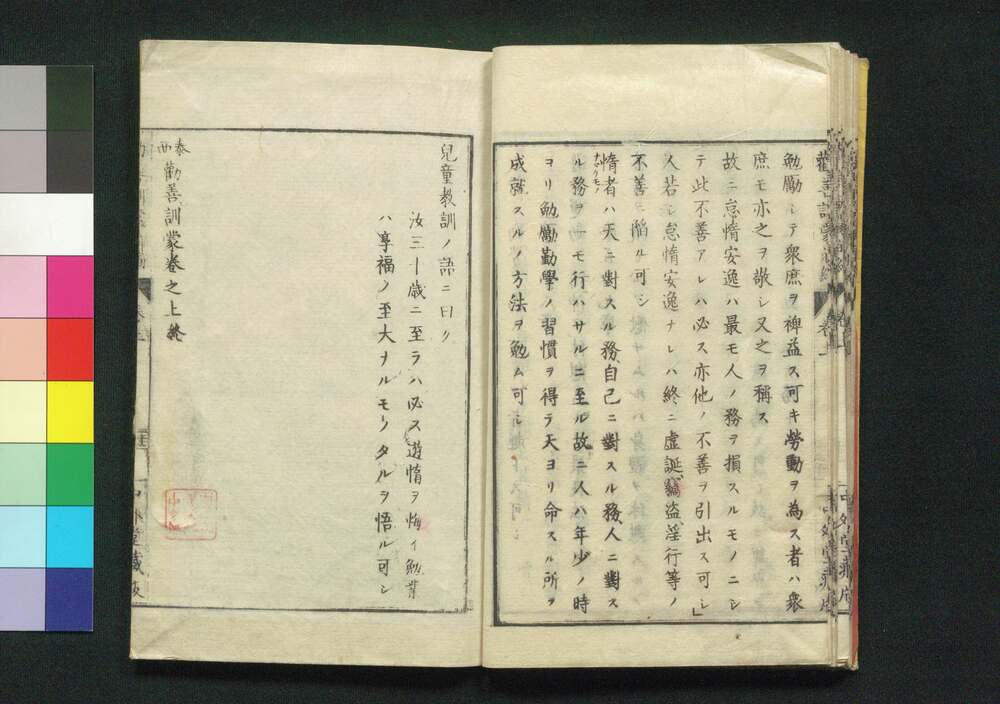 勉勵シテ衆庶ヲ裨益ス可キ勞動ヲ為ス者ハ衆
庶モ亦之ヲ敬シ又之ヲ稱ス
故ニ怠惰安逸ハ最モ人ノ務ヲ損スルモノニシ
テ此不善アレハ必ス亦他ノ不善ヲ引出ス可シ」
人若シ怠惰安逸ナレハ終ニ虚誕竊盗淫行等ノ
不善ニ陥ル可シ
惰者ハ天ニ對スル務自己ニ對スル務人ニ對ス
ル務ヲ一モ行ハサルニ至ル故ニ人ハ年少ノ時
ヨリ勉勵勤學ノ習慣ヲ得テ天ヨリ命スル所ヲ
成就スルノ方法ヲ勉ム可シ
兒童教訓ノ語ニ曰ク
汝三十歳ニ至ラハ必ス遊惰ヲ悔イ勉業
ハ享福ノ至大ナルモノタルヲ悟ル可シ
泰西勸善訓蒙卷之上終